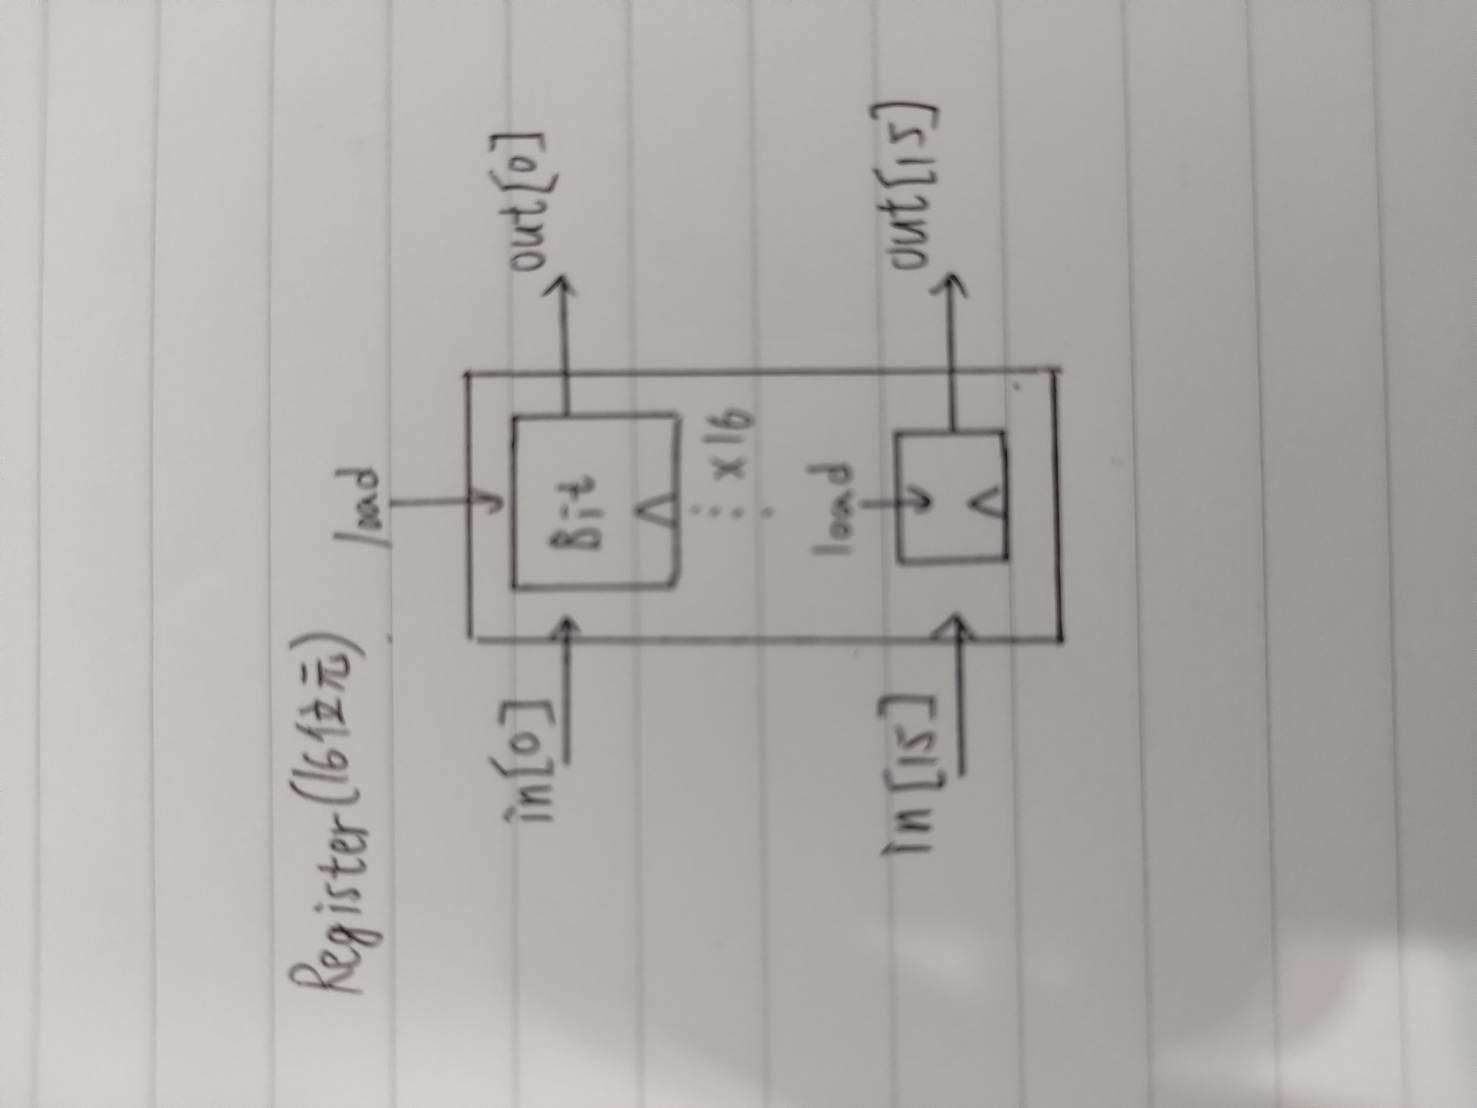 Register(16位元)
load
in[0]
out[0]
Bit
x16
load
in[15]
out[15]